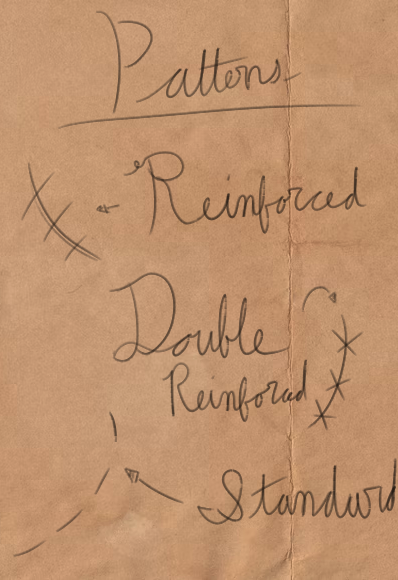 Patterns
Reinforced
Double
Reinforced
Standard